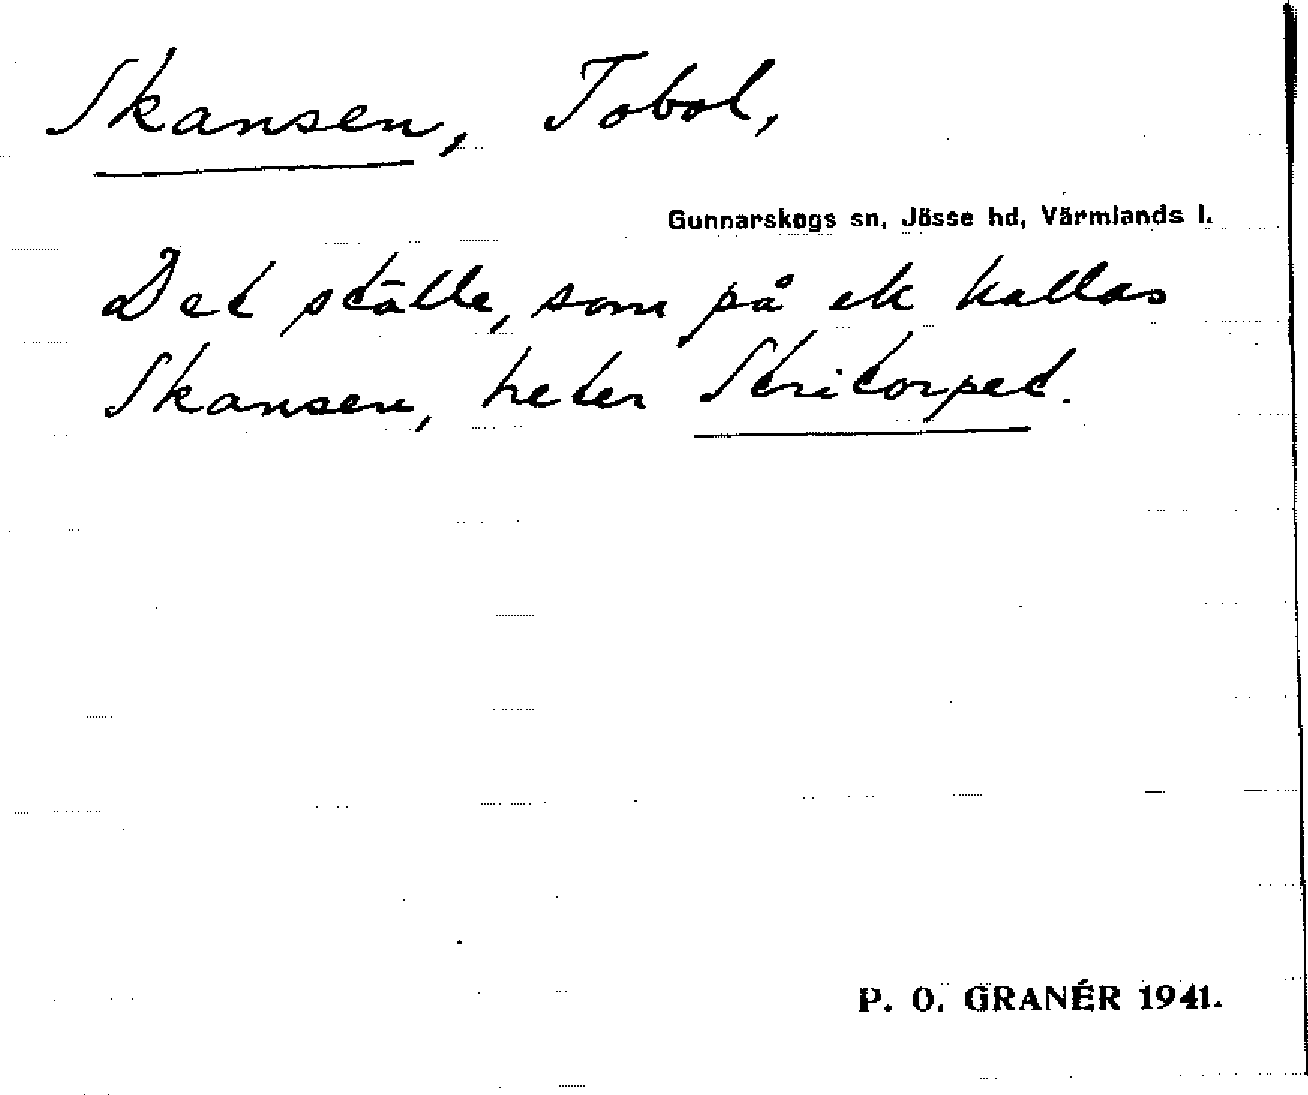 Skansen, Tobol,
Gunnarskogs sn, Jösse hd, Värmlands l.
Det ställe, som på ek kallas
Skansen, heter Stritorpet.
P. O. GRANÉR 1941.